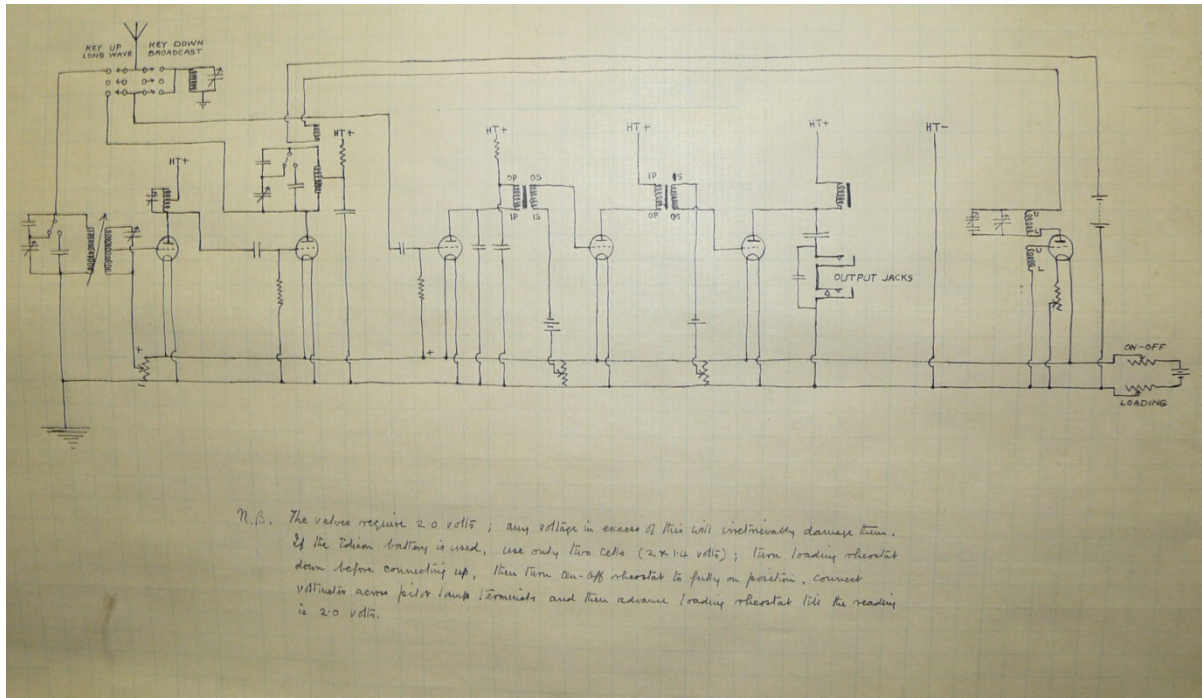 KEY UP
LONG WAVE
KEY DOWN
BROADCAST
HT+
HT+
HT+
HT+
HT+
HT-
OP OS
IP IS
IP IS
OP OS
OUTPUT JACKS
ON-OFF
LOADING
N.B. The valves require 2.0 volts ; any voltage in excess of this will irretrievably damage them.
If the Edison battery is used, use only two cells (2 x 1.4 volts) ; turn loading rheostat
down before connecting up, then turn on-off rheostat to fully on position, connect
voltmeter across pilot lamp terminals and then advance loading rheostat till the reading
is 2.0 volts.